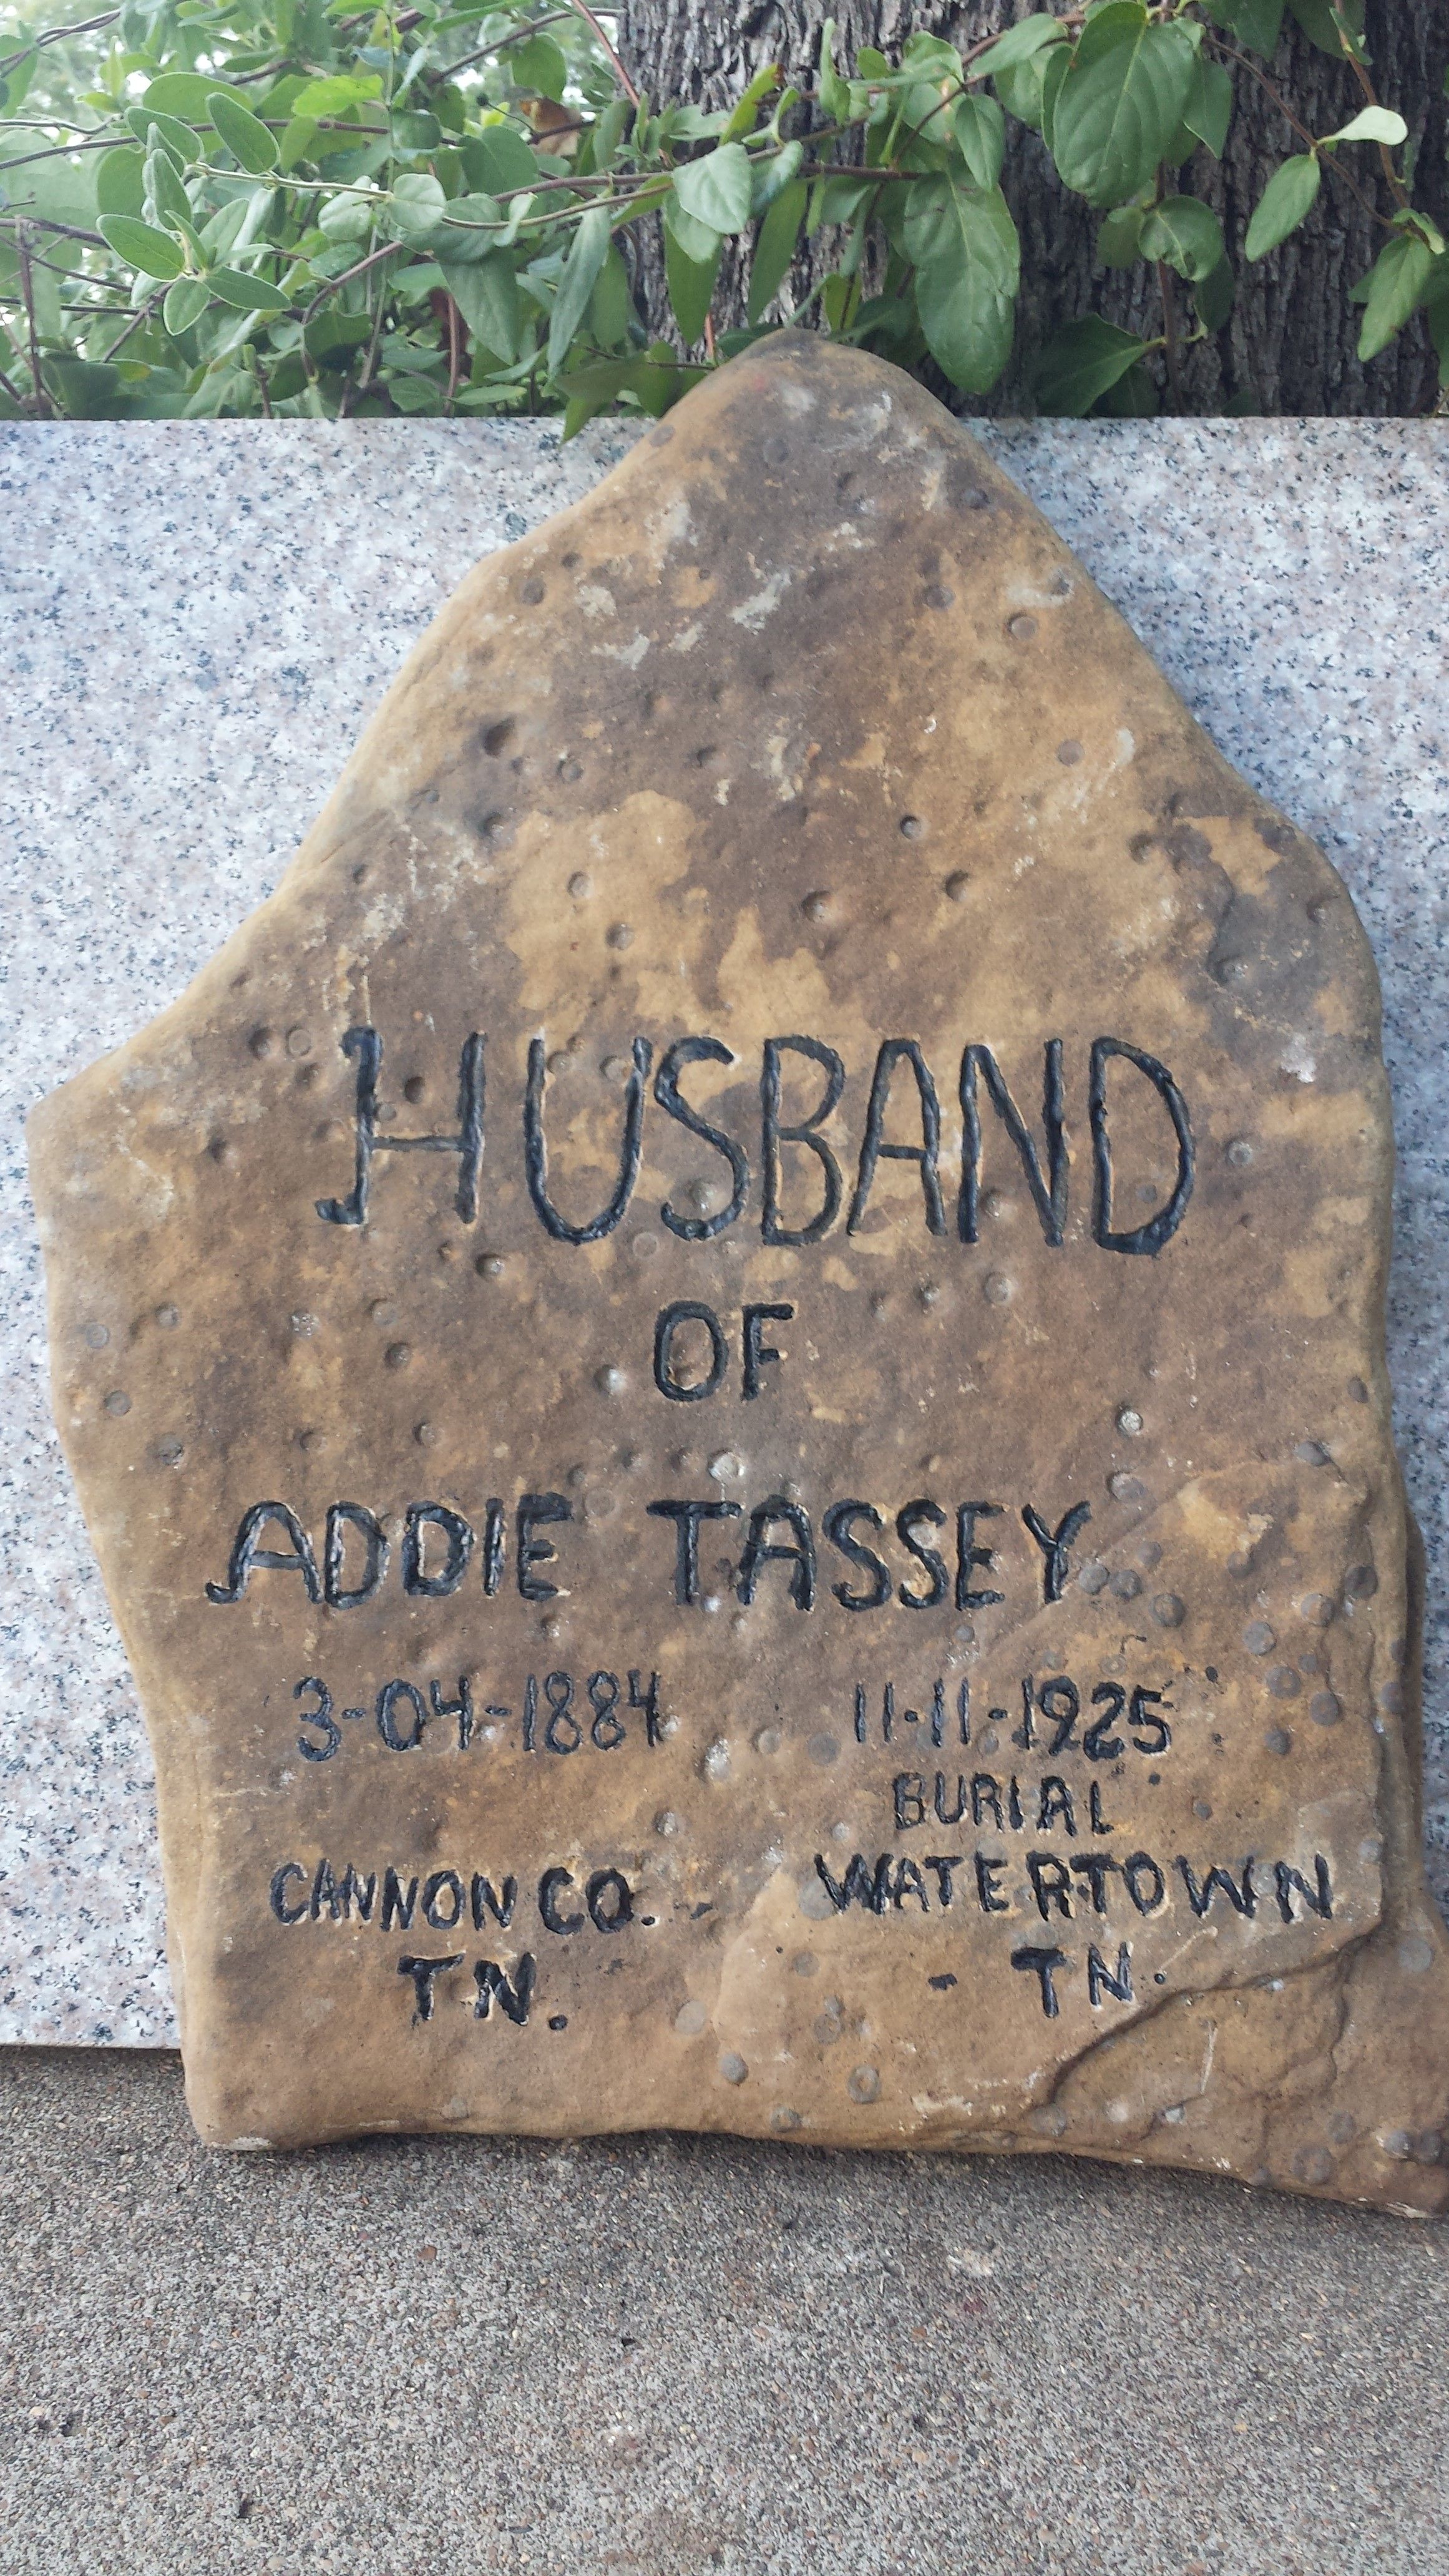 HUSBAND
OF
ADDIE TASSEY
3-04-1884 11-11-1925
BURIAL
CANNON CO. - WATERTOWN
TN. - TN.